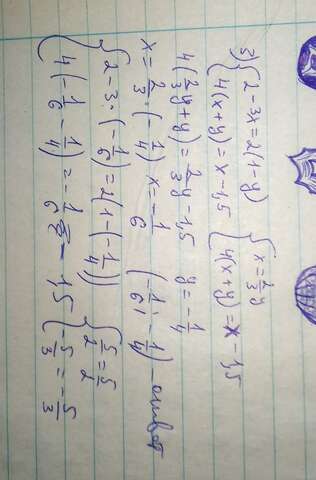 3) { 2-3x=2(1-y)  4(x+y)=x-1,5  { x=2/3 y  4(x+y)=x-1,5
4(2/3 y+y)=2/3 y-1,5  y=-1/4
x=2/3·(-1/4)  x=-1/6  (-1/6; -1/4) - ответ
{ 2-3·(-1/6)=2(1-(-1/4))  { 5/2=5/2
4(-1/6-1/4)=-1/6-1,5  -5/3=-5/3